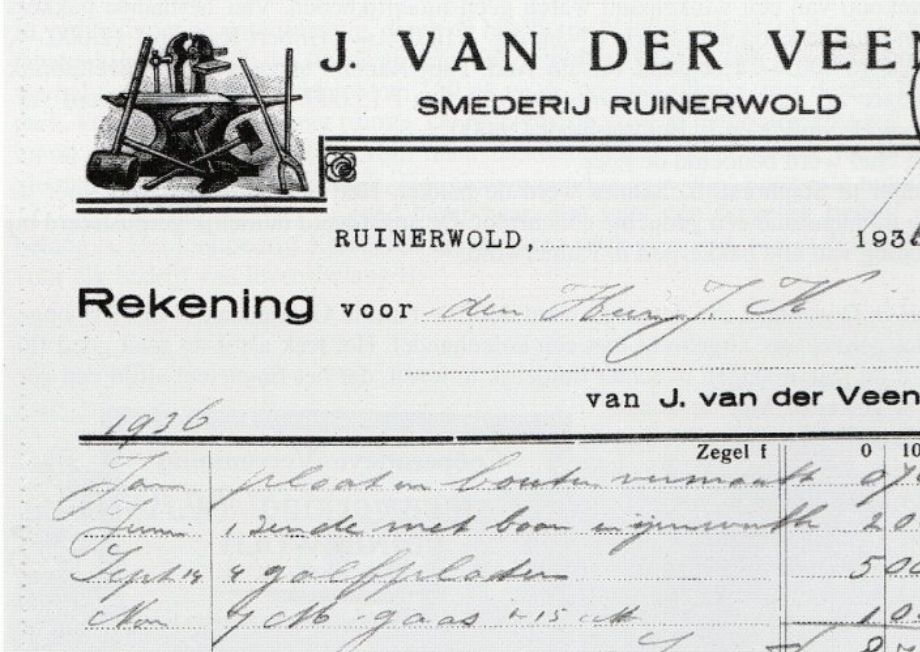 J. VAN DER VEEN
SMEDERIJ RUINERWOLD
RUINERWOLD, 193
Rekening voor den Heer J. K
van J. van der Veen
1936
Zegel f 0 10
Jan plaat en bouten vermaakt 0
Juni 1 zende met boom 20
Sept 14 4 golfplaten 500
Nov 7 M gaas 15